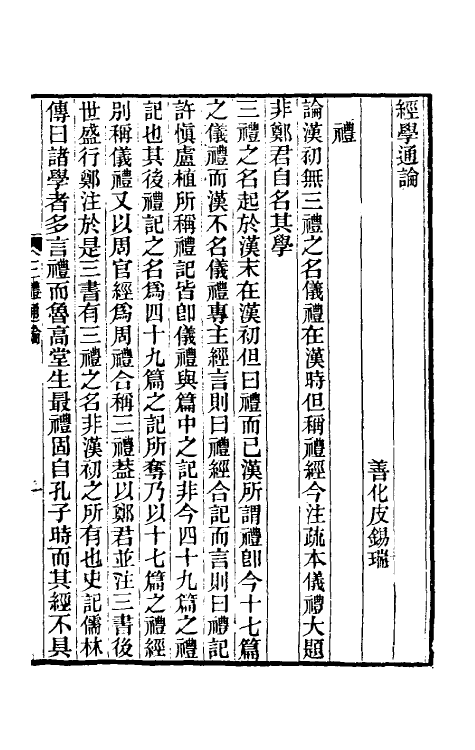 經學通論
善化皮錫瑞
禮
論漢初無三禮之名儀禮在漢時但稱禮經今注疏本儀禮大題
非鄭君自名其學
三禮之名起於漢末在漢初但曰禮而已漢所謂禮卽今十七篇
之儀禮而漢不名儀禮專主經言則曰禮經合記而言則曰禮記
許愼盧植所稱禮記皆卽儀禮與篇中之記非今四十九篇之禮
記也其後禮記之名爲四十九篇之記所奪乃以十七篇之禮經
別稱儀禮又以周官經爲周禮合稱三禮葢以鄭君並注三書後
世盛行鄭注於是三書有三禮之名非漢初之所有也史記儒林
傳曰諸學者多言禮而魯高堂生最禮固自孔子時而其經不具
三禮通論
一